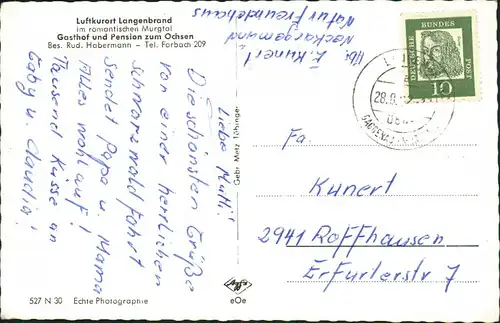 Luftkurort Langenbrand
im romantischen Murgtal
Gasthof und Pension zum Ochsen
Bes. Rud. Habermann – Tel. Forbach 209
Abs. E. Kunert
Neckargemünd
Naturfreundehaus
Liebe Mutti!
Die schönsten Grüße
von einer herrlichen
Schwarzwaldfahrt
sendet Papa u. Mama
Alles wohl auf!
Tausend Küsse an
Gaby u. Claudia!
Gebr. Metz Tübingen
DEUTSCHE
BUNDES
POST
10
28.8.
Fa.
Kunert
2941 Roffhausen
Erfurterstr 7
527 N 30 Echte Photographie
Agfa
eOe